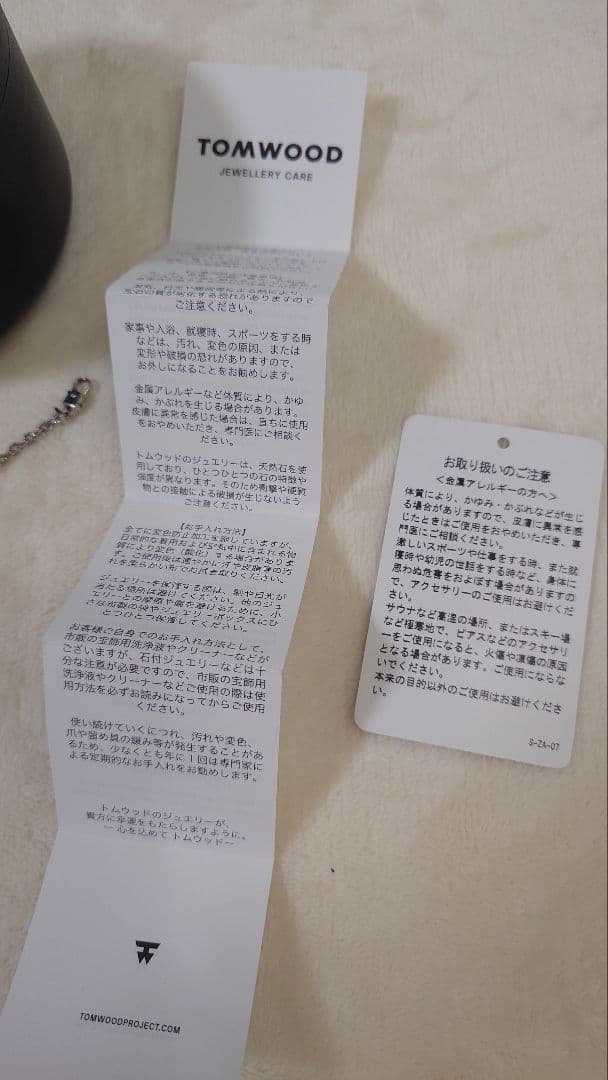 TOMWOOD
JEWELLERY CARE
ご注意ください。
家事や入浴、就寝時、スポーツをする時
などは、汚れ、変色の原因、または
変形や破損の恐れがありますので、
お外しになることをお勧めします。
金属アレルギーなど体質により、かゆ
み、かぶれを生じる場合があります。
皮膚に異常を感じた場合は、直ちに使用
をおやめいただき、専門医にご相談く
ださい。
トムウッドのジュエリーは、天然石を使
用しており、ひとつひとつの石の特徴や
強度が異なります。そのため衝撃や硬質
物との接触による破損が生じないよう
ご注意ください。
【お手入れ方法】
全てに変色防止加工を施していますが、
日常的な着用および空気中に含まれる物
質により変色（酸化）する場合がありま
す。ご使用後は速やかに汗や皮脂等の汚
れを柔らかい布でお拭き取りください。
ジュエリーを保管する際は、熱や日光が
当たる場所は避けてください。他のジュ
エリーとの摩擦や傷を避けるために、小
さな布製の袋やジュエリーボックスにひ
とつひとつ保管してください。
お客様ご自身でのお手入れ方法として、
市販の宝飾用洗浄液やクリーナーなどが
ございますが、石付ジュエリーなどは十
分な注意が必要ですので、市販の宝飾用
洗浄液やクリーナーなどご使用の際は使
用方法を必ずお読みになってからご使用
ください。
使い続けていくにつれ、汚れや変色、
爪や留め具の緩み等が発生することがあ
るため、少なくとも年に1回は専門家に
よる定期的なお手入れをお勧めします。
トムウッドのジュエリーが、
貴方に幸運をもたらしますように。
ー 心を込めて トムウッドー
TOMWOODPROJECT.COM
お取り扱いのご注意
＜金属アレルギーの方へ＞
体質により、かゆみ・かぶれなどが生じ
る場合がありますので、皮膚に異常を感
じたときはご使用をおやめいただき、専
門医にご相談ください。
激しいスポーツや仕事をする時、また就
寝時や幼児の世話をする時など、身体に
思わぬ危害をおよぼす場合がありますの
で、アクセサリーのご使用はお避けくだ
さい。
サウナなど高温の場所、またはスキー場
など極寒地で、ピアスなどのアクセサリ
ーをご使用になると、火傷や凍傷の原因
となる場合があります。ご使用にならな
いでください。
本来の目的以外のご使用はお避けくださ
い。
S-ZA-07